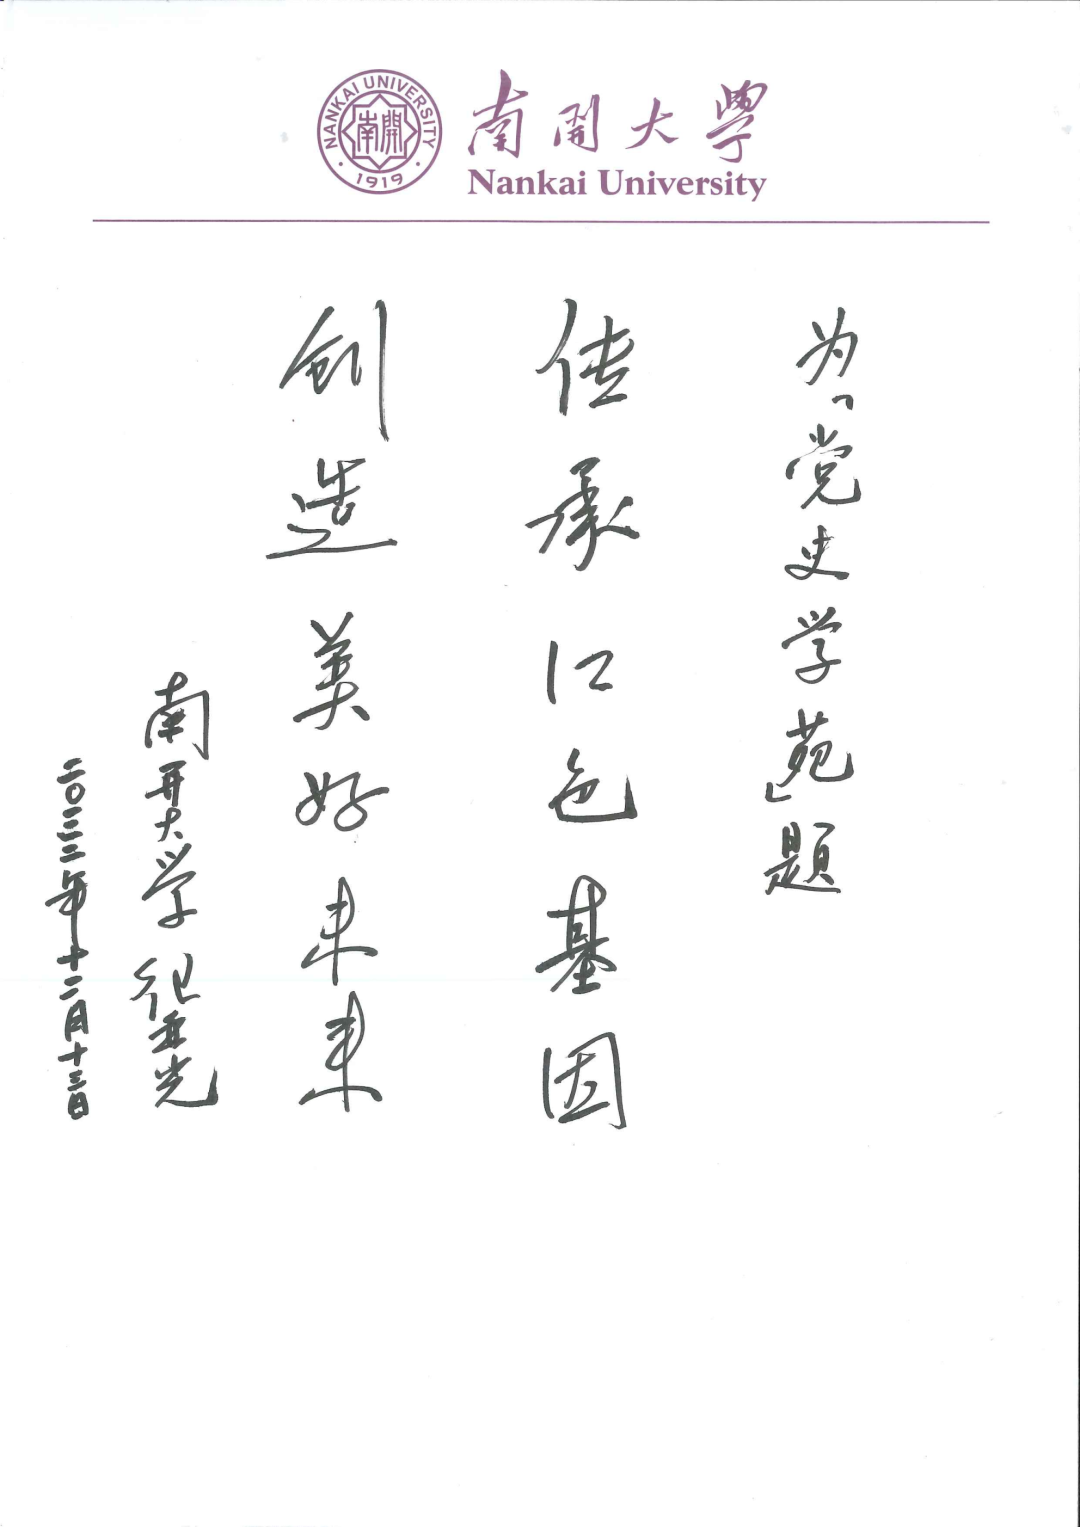 NANKAI UNIVERSITY
南開
·1919·
南開大學
Nankai University
为「党史学苑」题
传承红色基因
创造美好未来
南开大学 纪亚光
二〇二三年十二月十三日